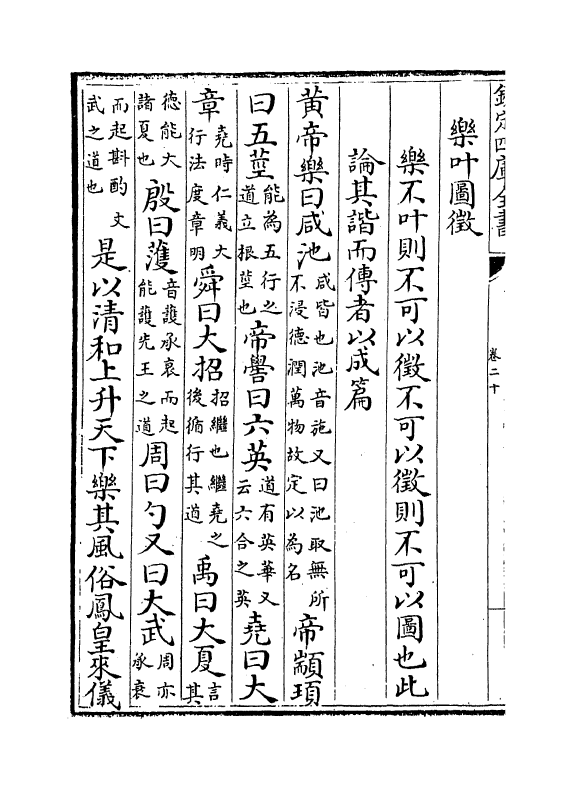 欽定四庫全書
卷二十
樂叶圖徵
樂不叶則不可以徵不可以徵則不可以圖也此
論其諧而傳者以成篇
黃帝樂曰咸池咸皆也池音施又曰池取無所不浸德潤萬物故定以為名帝顓頊
曰五莖能為五行之道立根莖也帝嚳曰六英道有英華又云六合之英堯曰大
章堯時仁義大行法度章明舜曰大招招繼也繼堯之後循行其道禹曰大夏言其
德能大諸夏也殷曰濩音護承衰而起能護先王之道周曰勺又曰大武周亦承衰
而起斟酌文武之道也是以清和上升天下樂其風俗鳳皇來儀